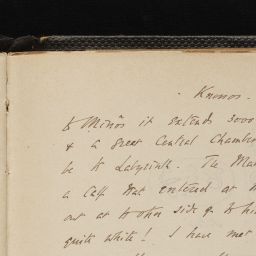 Knossos.
to Minos it extends 3000
& a great Central Chamber
be the Labyrinth. The
a Calf that entered at
out at the other side & the
quite white! I have met